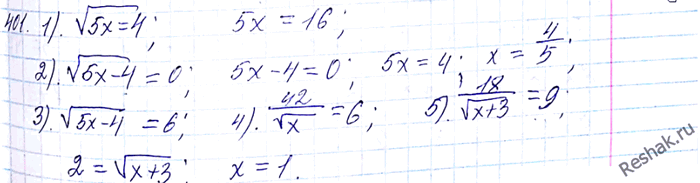 401. 1). √5x=4; 5x = 16;
2). √5x-4 = 0; 5x-4=0; 5x=4; x = 4/5;
3). √5x-4 = 6; 4). 42/√x = 6; 5). 18/√x+3 = 9;
2 = √x+3; x = 1.
Reshak.ru